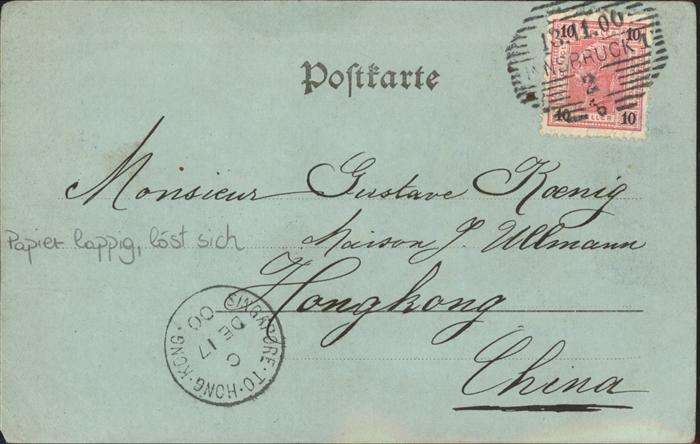 Postkarte
10 10
18.11.00
INNSBRUCK 1
2
10 10
Monsieur Gustave Kœnig
Maison J. Ullmann
Papier lappig, löst sich
Hongkong
China
SINGAPORE·TO·HONG·KONG·
C
DE 17
00